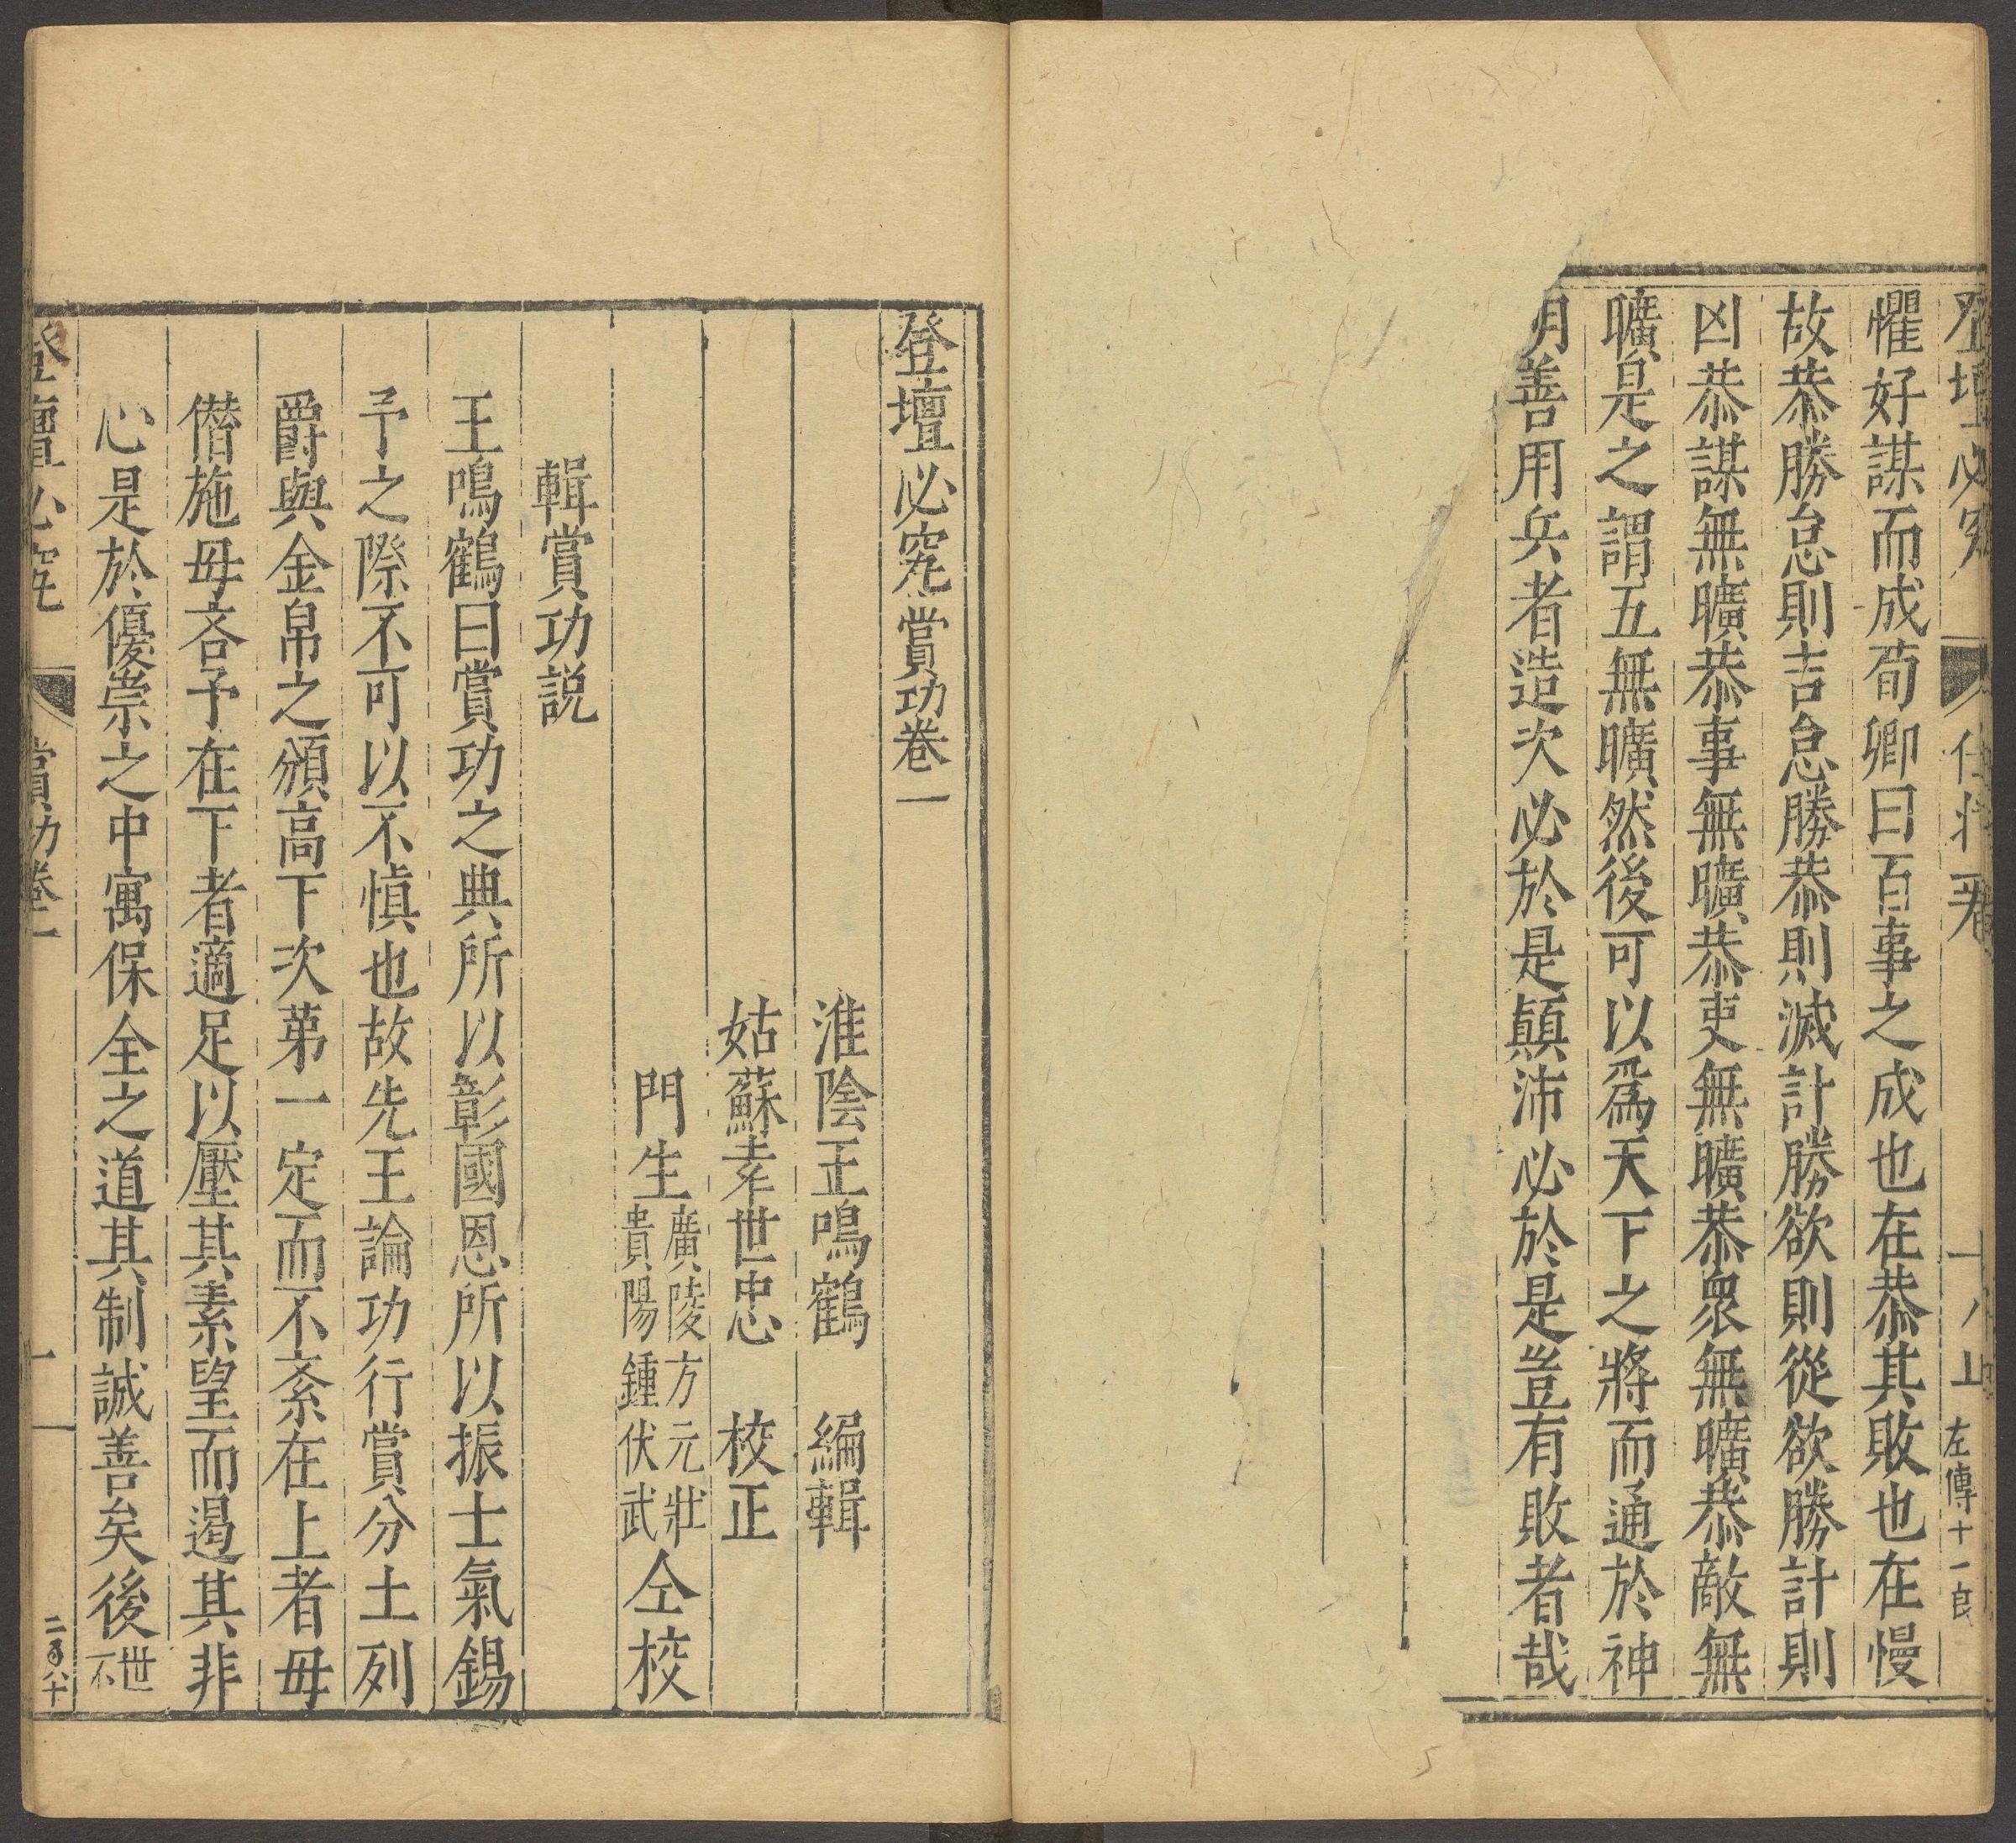 登壇必究
任將一卷
左傳十一良
懼好謀而成荀卿曰百事之成也在恭其敗也在慢
故恭勝怠則吉怠勝恭則滅計勝欲則從欲勝計則
凶恭謀無曠恭事無曠恭吏無曠恭衆無曠恭敵無
曠是之謂五無曠然後可以爲天下之將而通於神
明善用兵者造次必於是顚沛必於是豈有敗者哉
登壇必究賞功卷一
淮陰王鳴鶴　編輯
姑蘇幸世忠　校正
門生廣陵方元壯貴陽鍾伏武仝校
輯賞功説
王鳴鶴曰賞功之典所以彰國恩所以振士氣錫
予之際不可以不慎也故先王論功行賞分土列
爵與金帛之頒高下次第一定而不紊在上者毋
僣施毋吝予在下者適足以壓其素望而遏其非
心是於優崇之中寓保全之道其制誠善矣後世不
登壇必究
賞功卷一
一